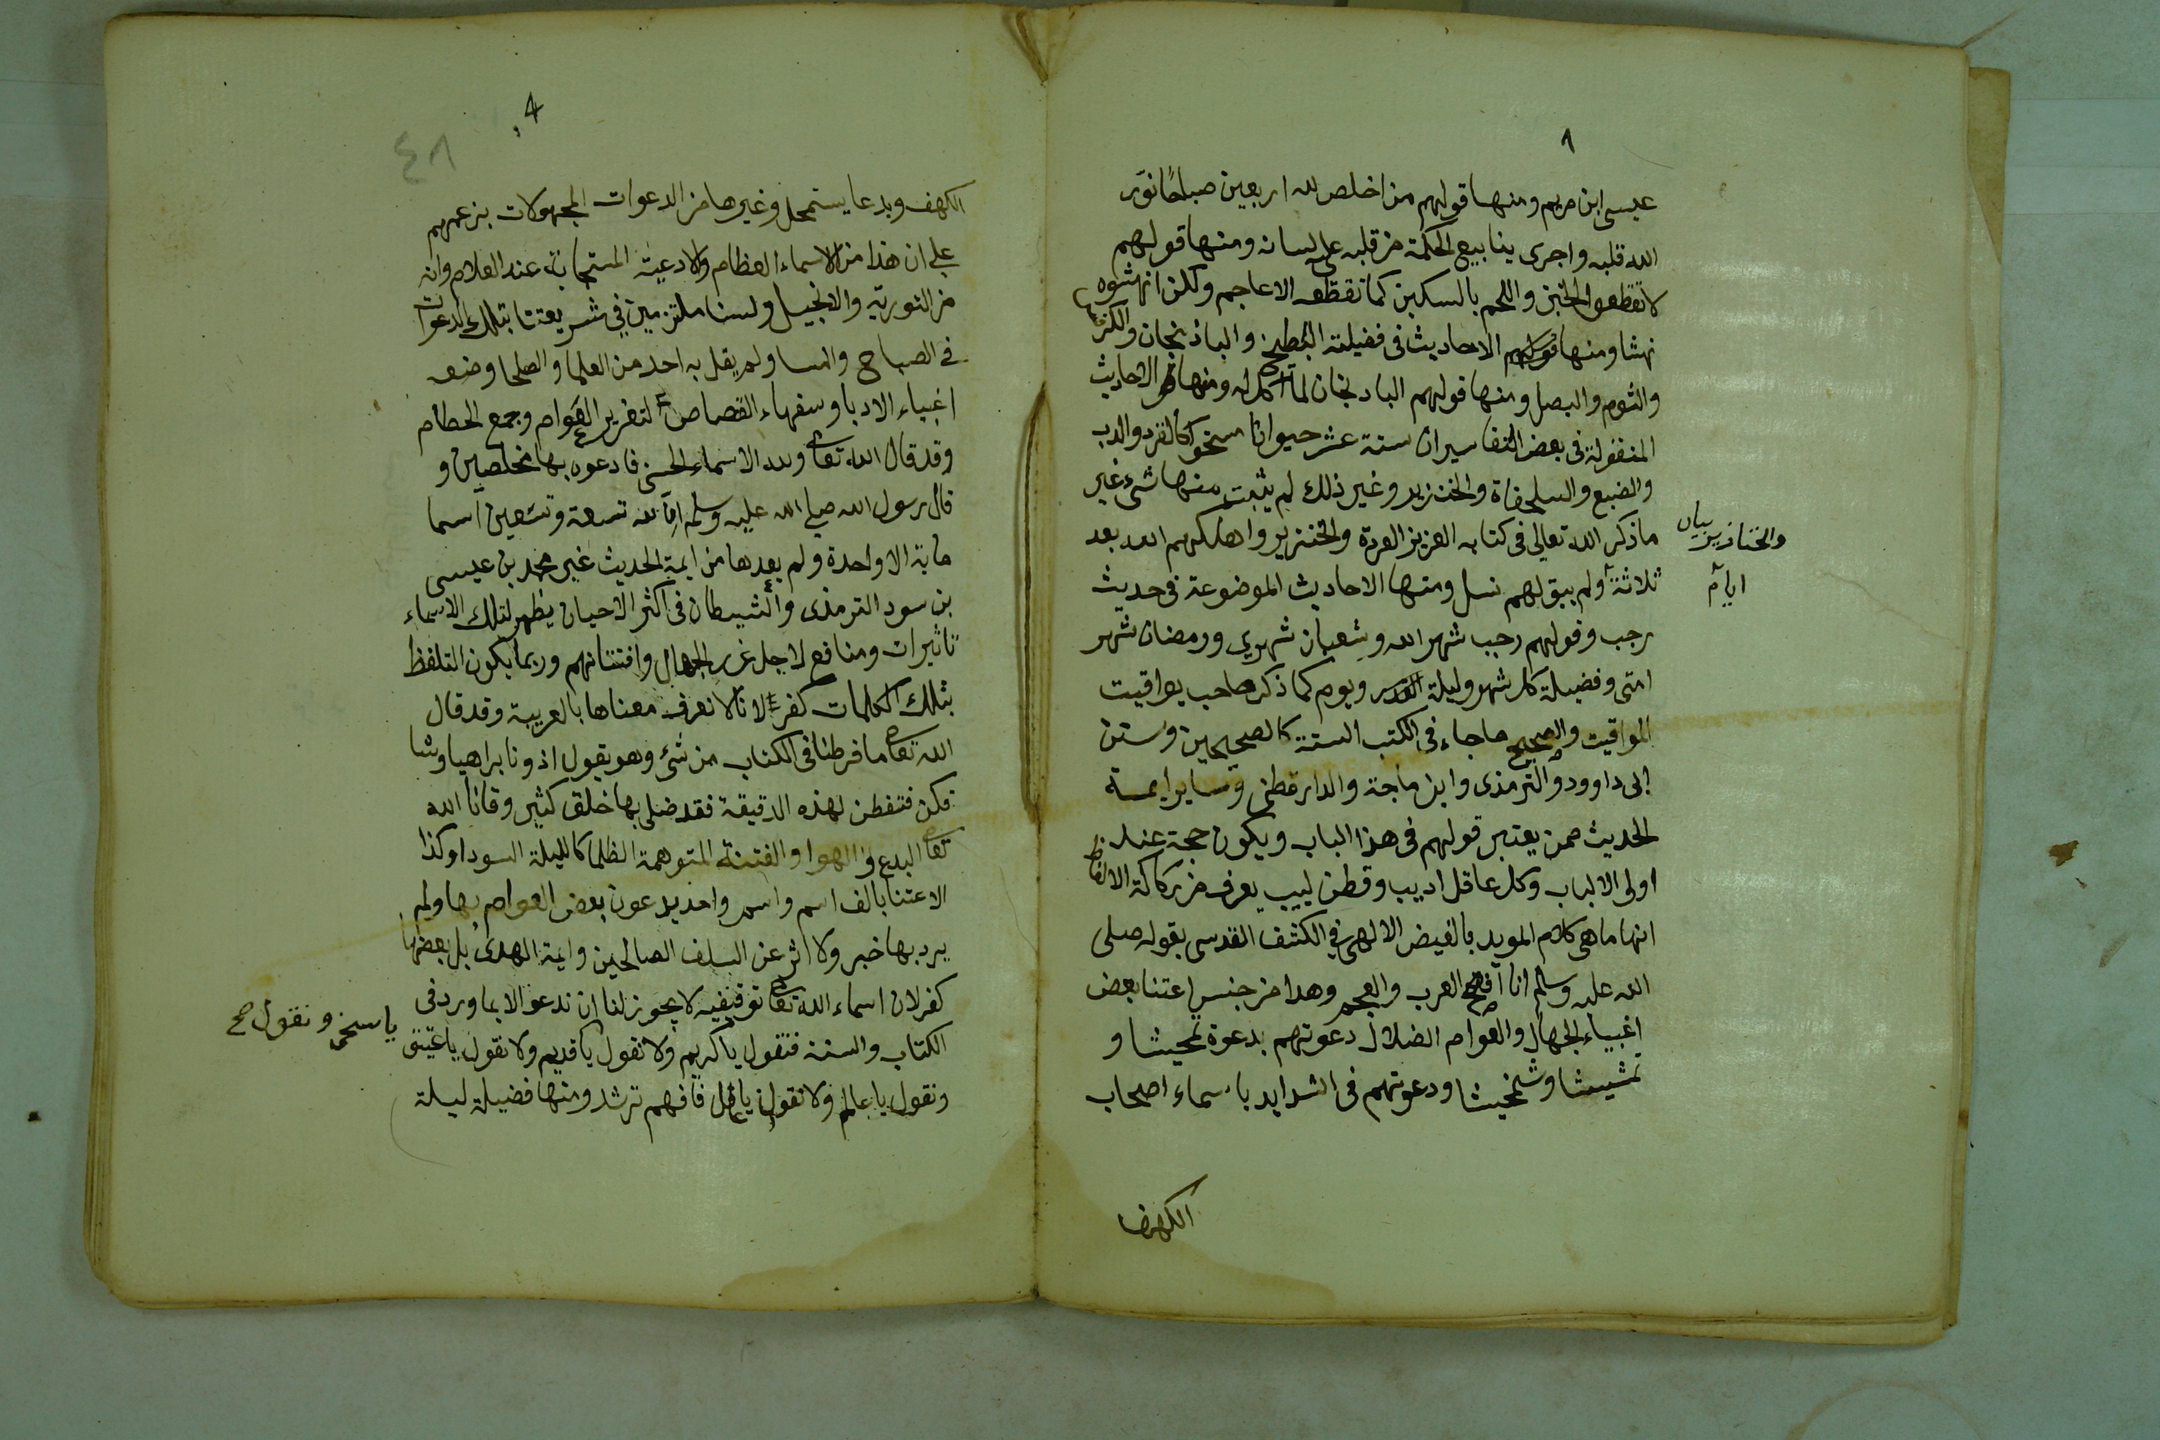 ٨
عيسى ابن مريم ومنها قولهم من اخلص لله اربعين صباحًا نوّر
الله قلبه واجرى ينابيع الحكمة من قلبه على لسانه ومنها قولهم
لا تقطعوا الخبز واللحم بالسكين كما تقطعه الاعاجم ولكن انهشوه
نهشا ومنها قولهم الاحاديث فى فضيلة البطيخ والباذنجان والكرفس
والثوم والبصل ومنها قولهم الباذنجان لما اكل له ومنها الاحاديث
المنقولة فى بعض التفاسير ان ستة عشر حيوانا مسخوا كالقرد والدب
والضبع والسلحفاة والخنزير وغير ذلك لم يثبت منها شىء غير
ما ذكر الله تعالى فى كتابه العزيز القردة والخنزير واهلكهم الله بعد
ثلاثة ولم يبق لهم نسل ومنها الاحاديث الموضوعة فى حديث
رجب وقولهم رجب شهر الله وشعبان شهري ورمضان شهر
امتى وفضيلة كل شهر وليلة القدر ويوم كما ذكر صاحب يواقيت
المواقيت والصحيح ما جاء فى الكتب الستة كالصحيحين وسنن
ابى داوود والترمذى وابن ماجة والدارقطنى وساير ايمة
الحديث ممن يعتبر قولهم فى هذا الباب ويكون حجة عند
اولى الالباب وكل عاقل اديب وفطن لبيب يعرف من ركاكة الالفاظ
انها ما هى كلام المويد بالفيض الالهى فى الكشف القدسى بقوله صلى
الله عليه وسلم انا افصح العرب والعجم وهذا من جنس اعتنا بعض
اغبياء الجهال والعوام الضلال دعوتهم بدعوة تمخيشا و
تمشيشا وشمخيشا ودعوتهم فى الشدايد باسماء اصحاب
الكهف
والخنازير بيان
ايام
٤٨
الكهف وبدعا يستمحل وغيرها من الدعوات المجهولات بزعمهم
على ان هذا من الاسماء العظام والادعية المستجابة عند العلام وانه
من التورية والانجيل ولسنا ملتزمين فى شريعتنا بتلك الدعوات
فى الصباح والمسا ولم يقل به احد من العلما والصلحا وضعه
اغبياء الادبا وسفهاء القصاص لتغرير العوام وجمع الحطام
وقد قال الله تعالى ولله الاسماء الحسنى فادعوه بها مخلصين و
قال رسول الله صلى الله عليه وسلم ان لله تسعة وتسعين اسما
ماية الا واحدة ولم يعدها من ايمة الحديث غير محمد بن عيسى
بن سود الترمذى والشيطان فى اكثر الاحيان يظهر لتلك الاسماء
تاثيرات ومنافع لاجل غرر الجهال وافتتانهم وربما يكون التلفظ
بتلك الكلمات كفرا لانا لا نعرف معناها بالعربية وقد قال
الله تعالى ما فرطنا فى الكتاب من شىء وهو يقول اذونا براهيا وشا
فكن فتفطن لهذه الدقيقة فقد ضل بها خلق كثير وقانا الله
تعالى البدع والهوا والفتنة المتوهمة الظلما كالليلة السودا وكذا
الاعتنا بالف اسم واسم واحد يدعون بعض العوام بها ولم
يرد بها خبر ولا اثر عن السلف الصالحين وايمة الهدى بل بعضها
كفر لان اسماء الله تعالى توقيفيه لا يجوز لنا ان ندعو الا بما ورد فى
الكتاب والسنة فنقول يا كريم ولا نقول يا قديم ولا نقول يا عتيق
ونقول يا عالم ولا نقول يا عاقل فافهم ترشد ومنها فضيلة ليلة
يا سخى ونقول صح